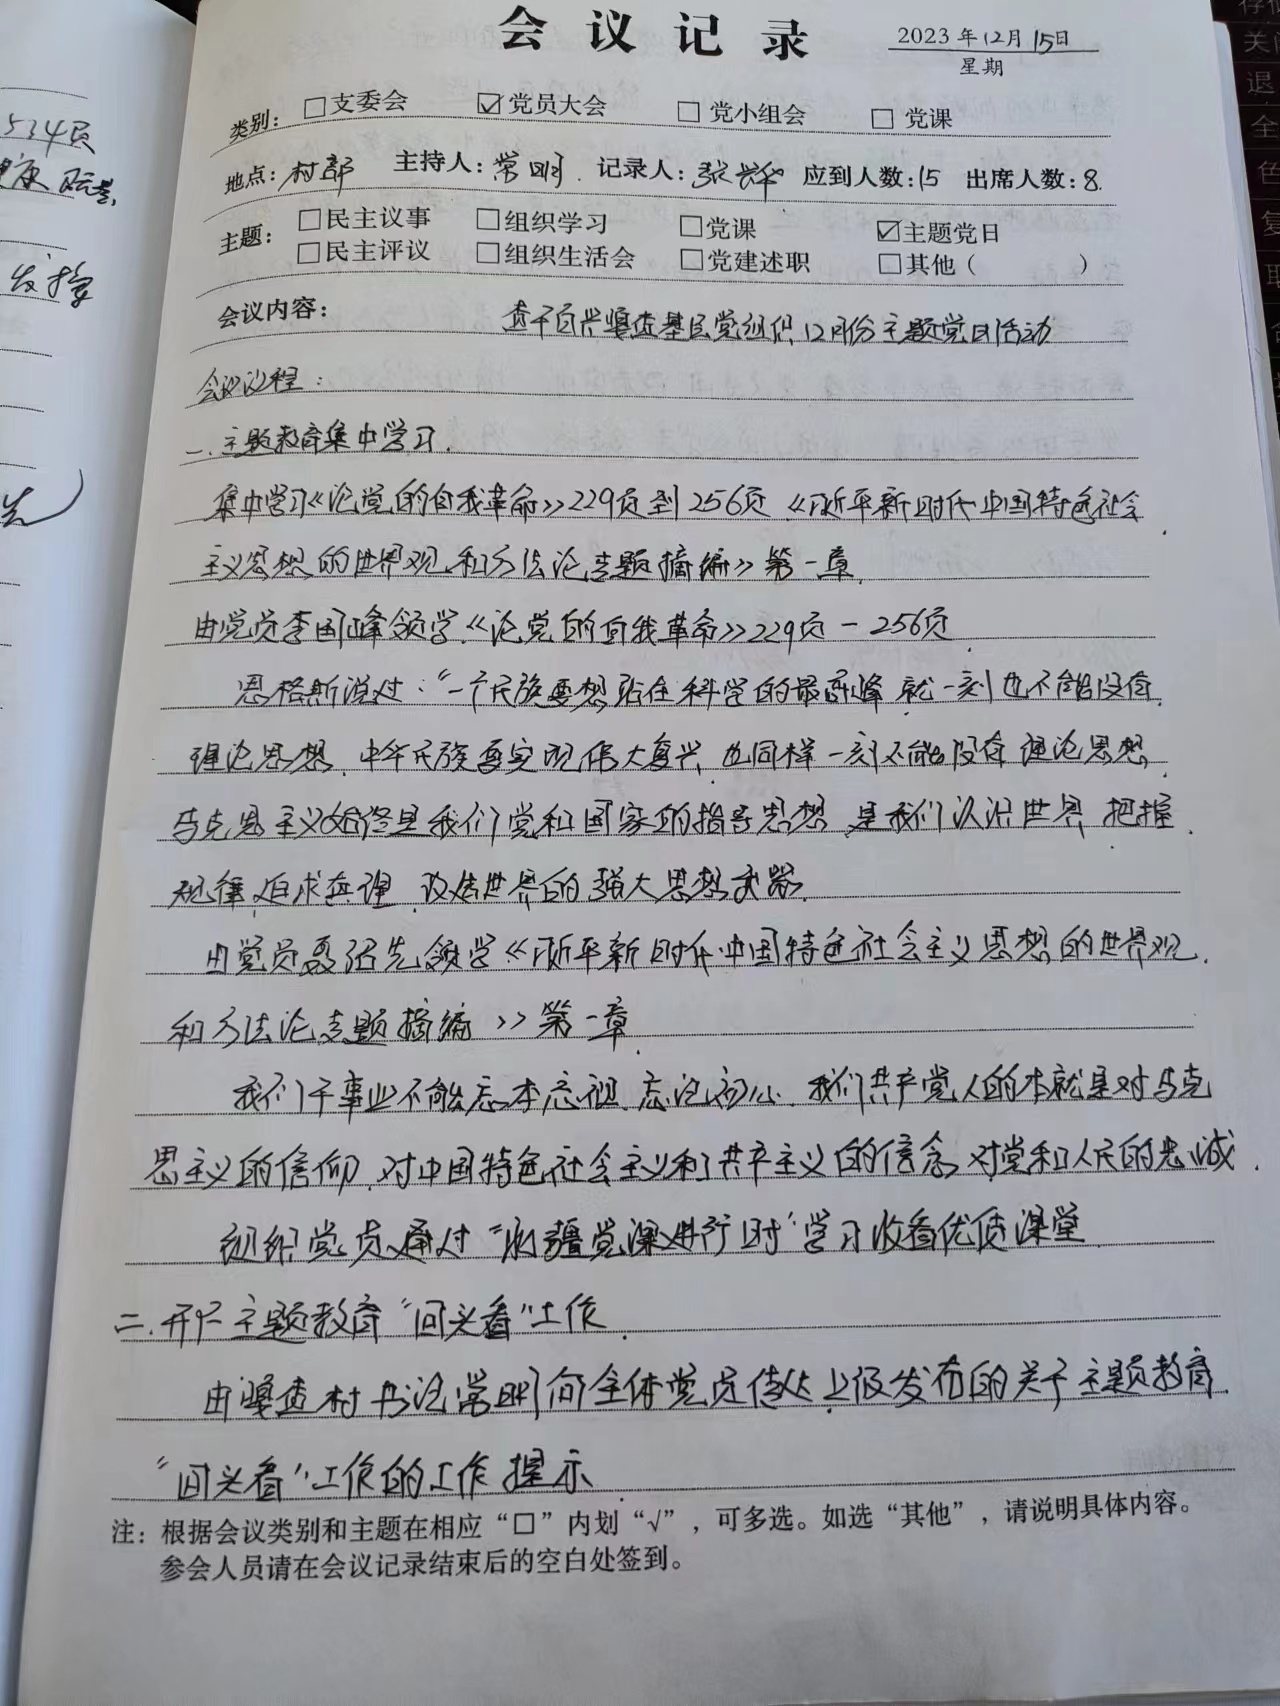 会议记录
2023年12月15日
星期
类别： □支委会 ☑党员大会 □党小组会 □党课
地点：村部 主持人：常明 记录人：张 应到人数：15 出席人数：8
主题： □民主议事 □组织学习 □党课 ☑主题党日
□民主评议 □组织生活会 □党建述职 □其他（ ）
会议内容： 基层党组织12月份主题党日活动
会议议程：
一、主题教育集中学习
集中学习《论党的自我革命》229页到256页《习近平新时代中国特色社会
主义思想的世界观和方法论专题摘编》第一章
由党员李国峰领学《论党的自我革命》229页－256页
恩格斯说过：“一个民族要想站在科学的最高峰 就一刻也不能没有
理论思想 中华民族要实现伟大复兴 也同样一刻不能没有理论思想
马克思主义始终是我们党和国家的指导思想 是我们认识世界 把握
规律、追求真理、改造世界的强大思想武器
由党员 先领学《习近平新时代中国特色社会主义思想的世界观
和方法论专题摘编》第一章
我们干事业不能忘本忘祖、忘记初心、我们共产党人的本就是对马克
思主义的信仰，对中国特色社会主义和共产主义的信念 对党和人民的忠诚
组织党员通过“ 疆党课进行时”学习收看优质课堂
二、开展主题教育“回头看”工作
由 村书记常明向全体党员传达上级发布的关于主题教育
“回头看”工作的工作提示
注：根据会议类别和主题在相应“□”内划“√”，可多选。如选“其他”，请说明具体内容。
参会人员请在会议记录结束后的空白处签到。
534页
发挥
先